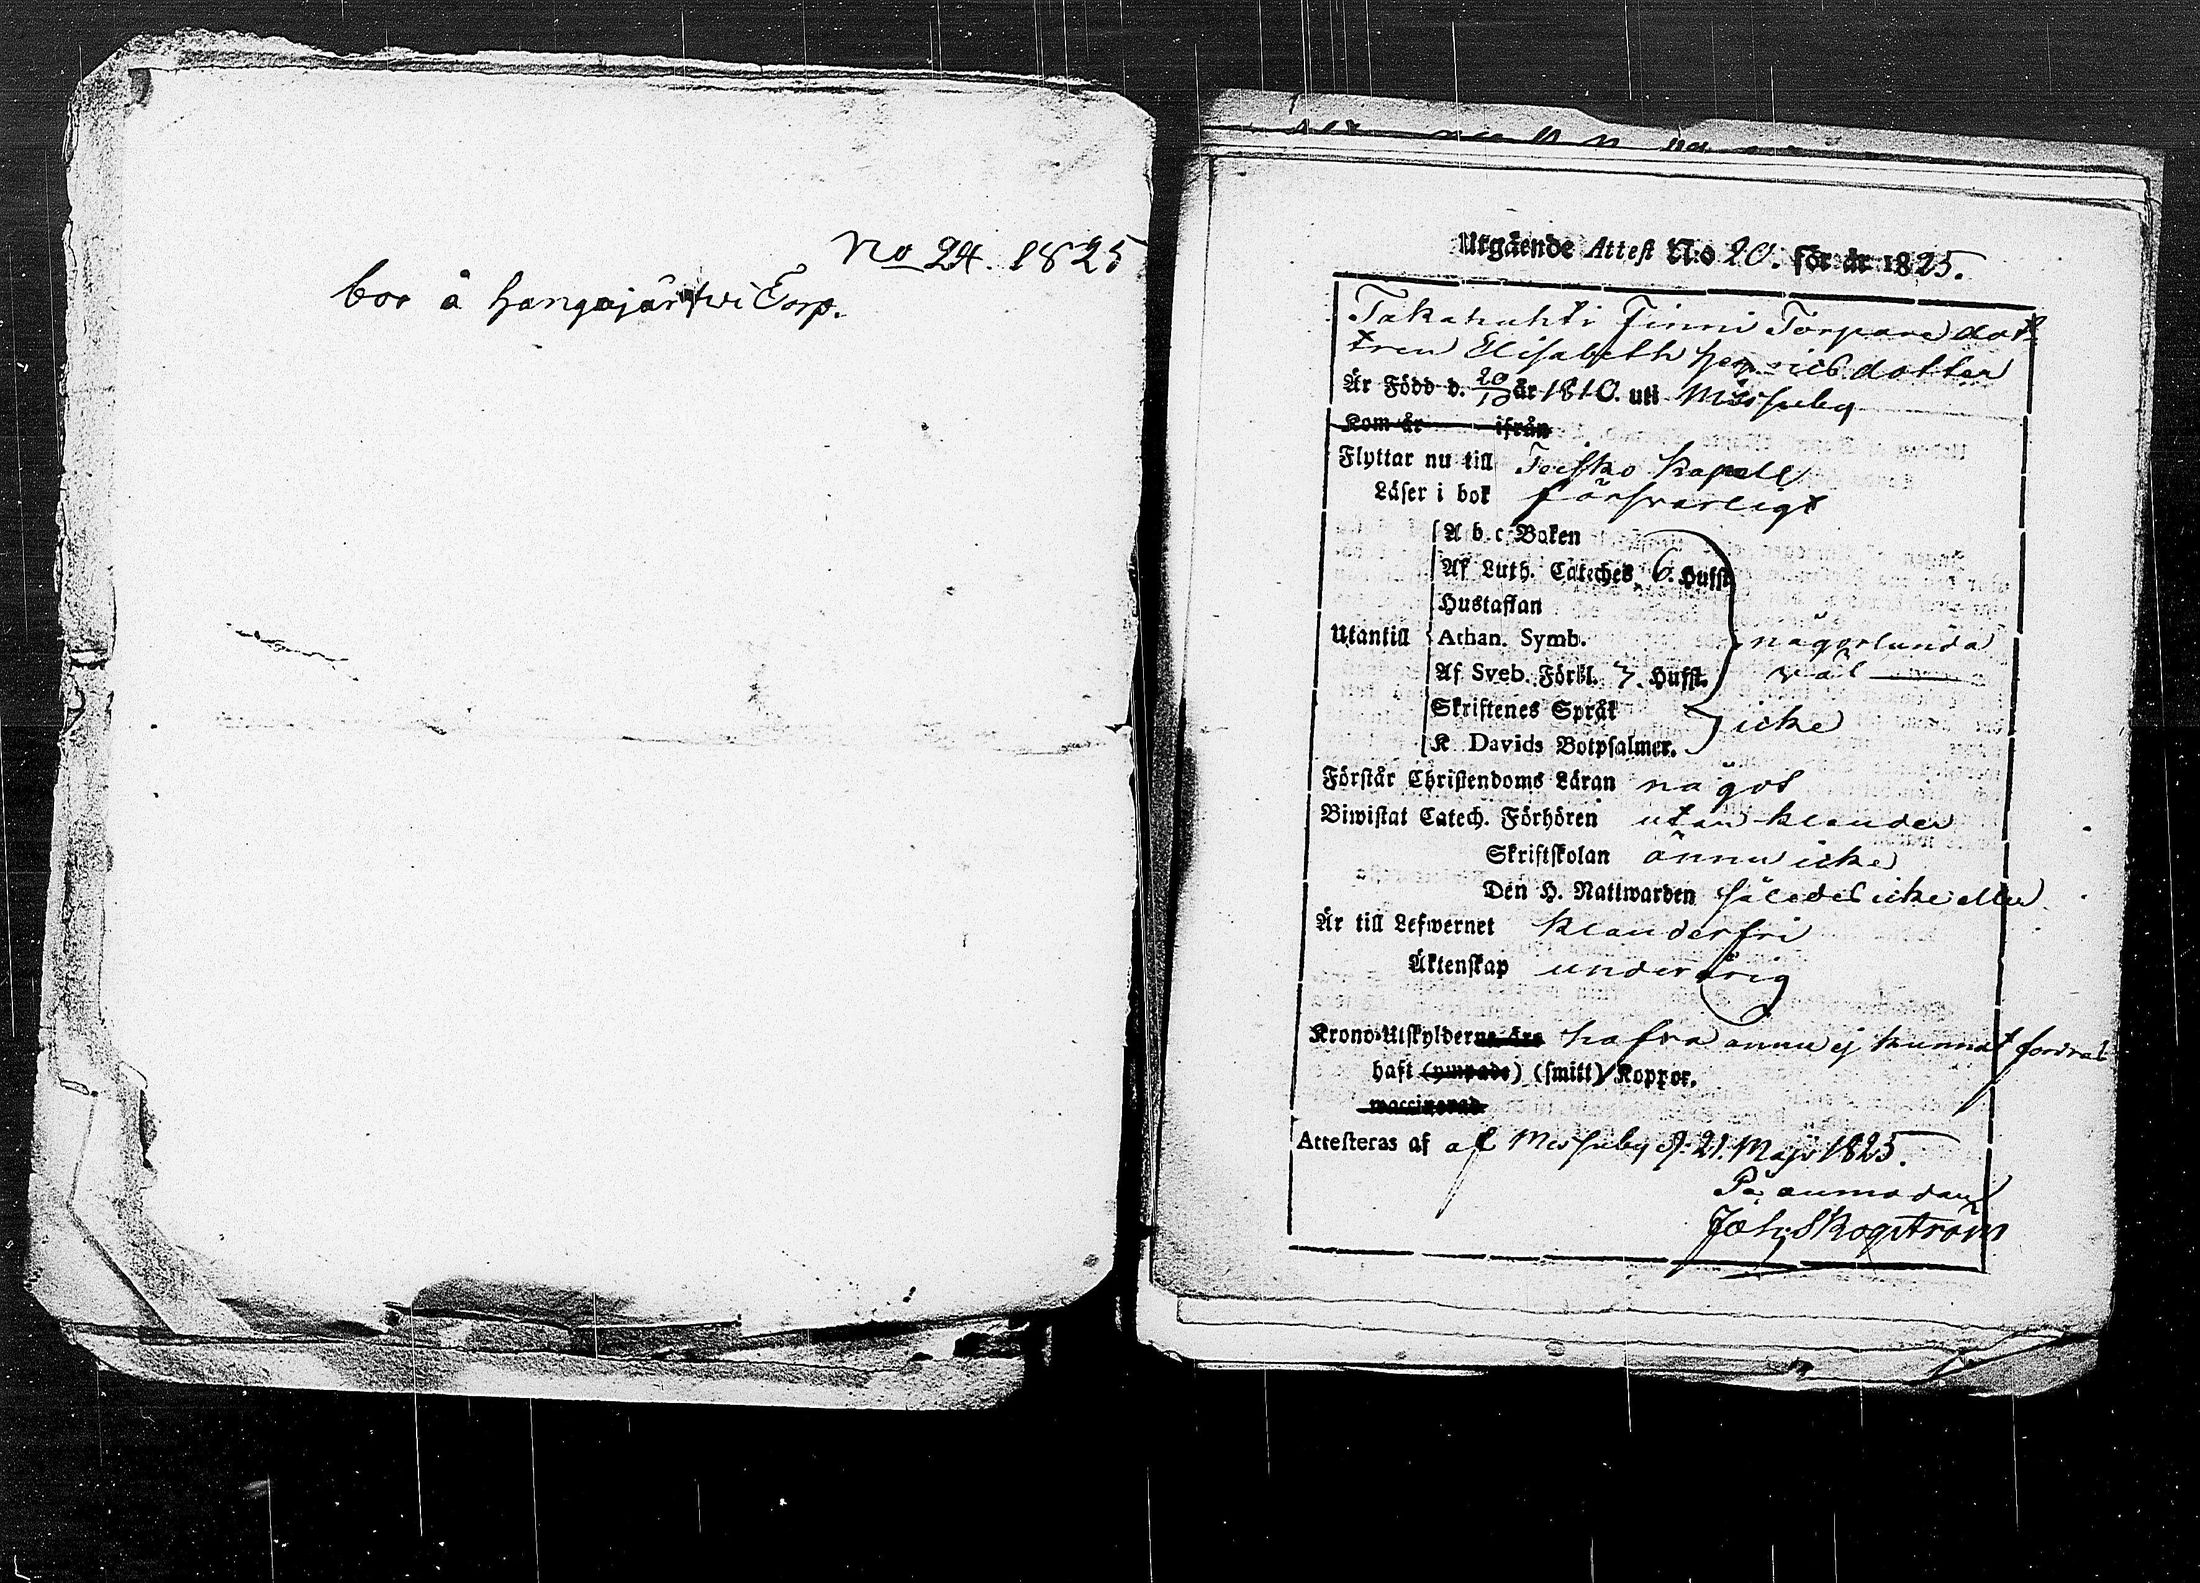 No 24. 1825
boo å Hangajärfwi Torp.
Utgående Attest N:o 20. för år 1825.
Takahuhti Finni Torpare dot-
tren Elisabeth Henricsdotter
Är Född d. 20/10 år 1810. uti Messuby
Kom år ifrån
Flyttar nu till Teisko Kapell
Läser i bok försvarligt
A b c Boken
Af Luth. Cateches. 6. Hufst.
Hustaflan
Utantill Athan. Symb. någorlunda
Af Sveb. Förkl. 7. Hufst. väl
Skriftenes Språk
K. Davids Botpsalmer. icke
Förstår Christendoms Läran något
Biwistat Catech. Förhören utan klander
Skriftskolan ännu icke
Den H. Nattwarden således icke eller
Är till Lefwernet klanderfri
Äktenskap underårig
Krono-Utskylderna åro hafva ännu ej kunnat fordras
haft (ympade) (smitt) Koppor.
waccinerad
Attesteras af af Messuby d. 21. Maji 1825.
På anmodan
Joh: Skogström